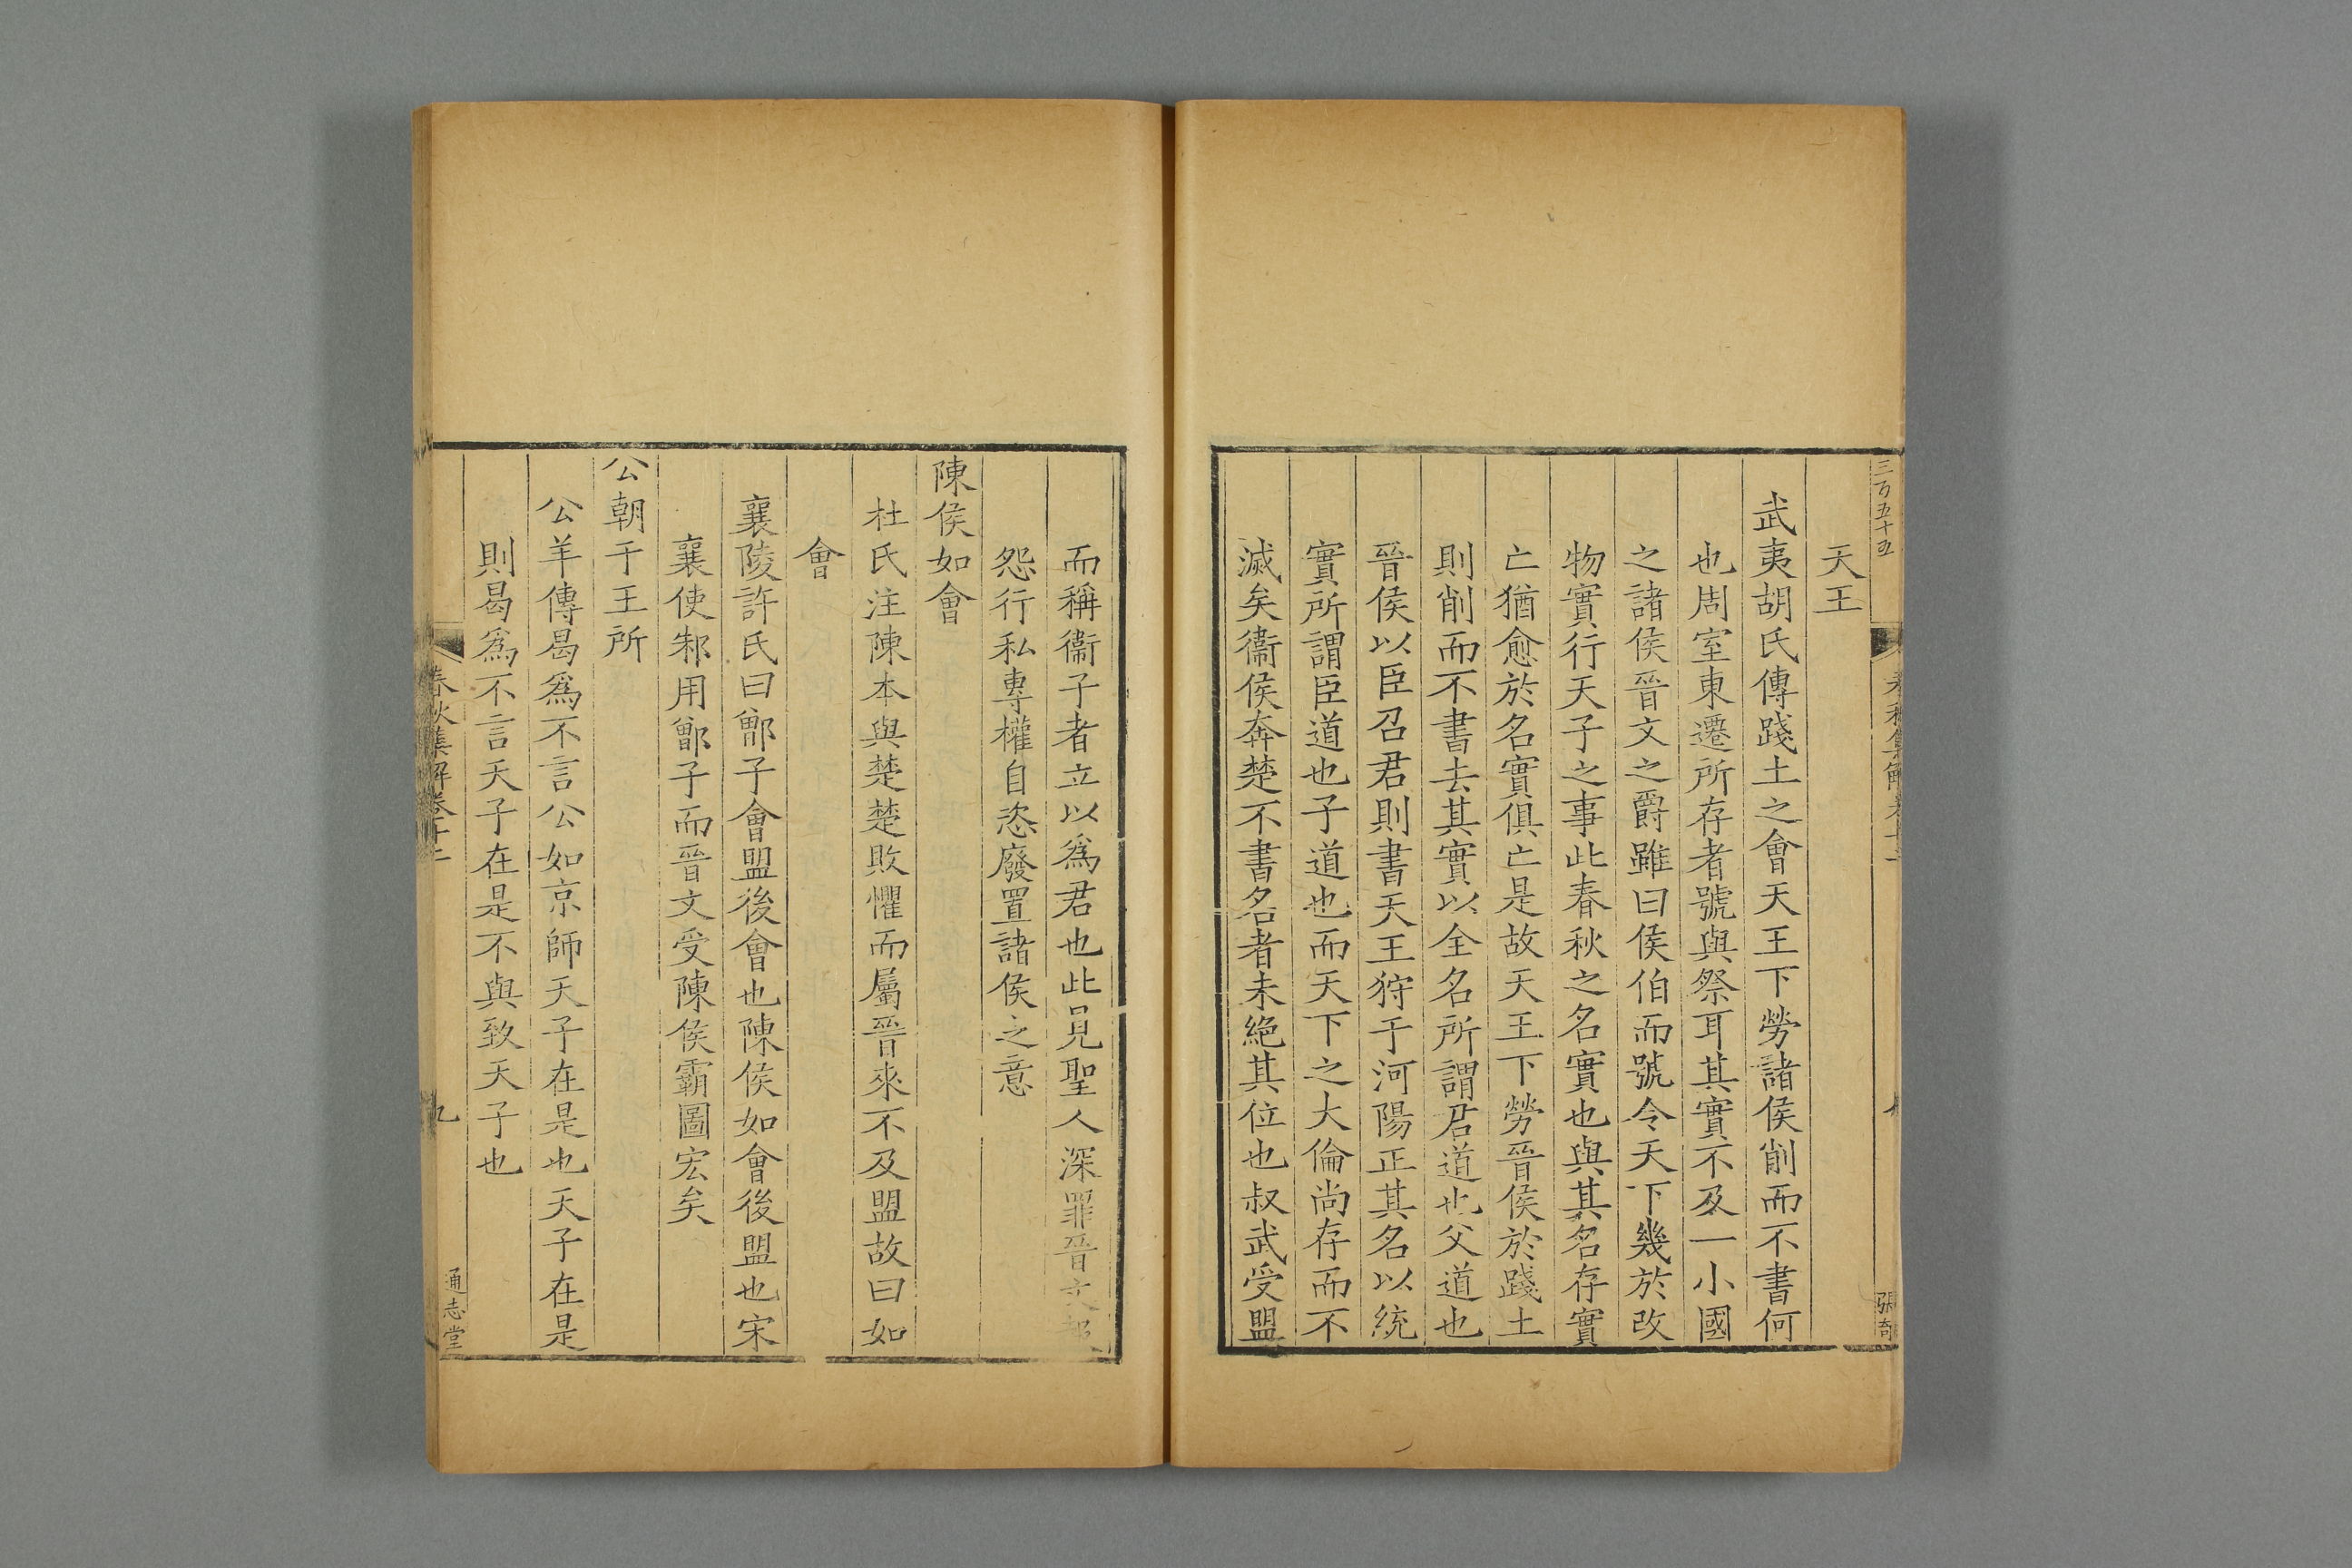 三百五十五
春秋集解卷十二
張奇
天王
武夷胡氏傳踐土之會天王下勞諸侯削而不書何
也周室東遷所存者號與祭耳其實不及一小國
之諸侯晉文之爵雖曰侯伯而號令天下幾於改
物實行天子之事此春秋之名實也與其名存實
亡猶愈於名實俱亡是故天王下勞晉侯於踐土
則削而不書去其實以全名所謂君道也父道也
晉侯以臣召君則書天王狩于河陽正其名以統
實所謂臣道也子道也而天下之大倫尚存而不
滅矣衞侯奔楚不書名者未絕其位也叔武受盟
而稱衞子者立以爲君也此見聖人深罪晉文報
怨行私專權自恣廢置諸侯之意
陳侯如會
杜氏注陳本與楚楚敗懼而屬晉來不及盟故曰如
會
襄陵許氏曰鄫子會盟後會也陳侯如會後盟也宋
襄使邾用鄫子而晉文受陳侯霸圖宏矣
公朝于王所
公羊傳曷爲不言公如京師天子在是也天子在是
則曷爲不言天子在是不與致天子也
春秋集解卷十二
九
通志堂